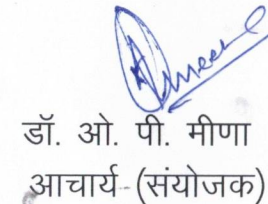 डॉ. ओ. पी. मीणा
आचार्य (संयोजक)